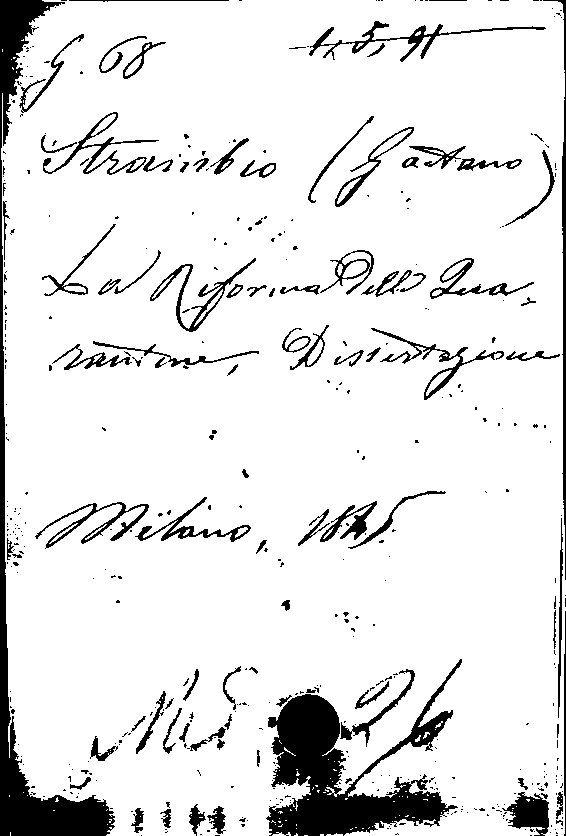 G. 68 1, 5, 91
Strambio (Gaetano)
La Riforma delle Qua-
rantene, Dissertazione
Milano, 1845.
Med. 26